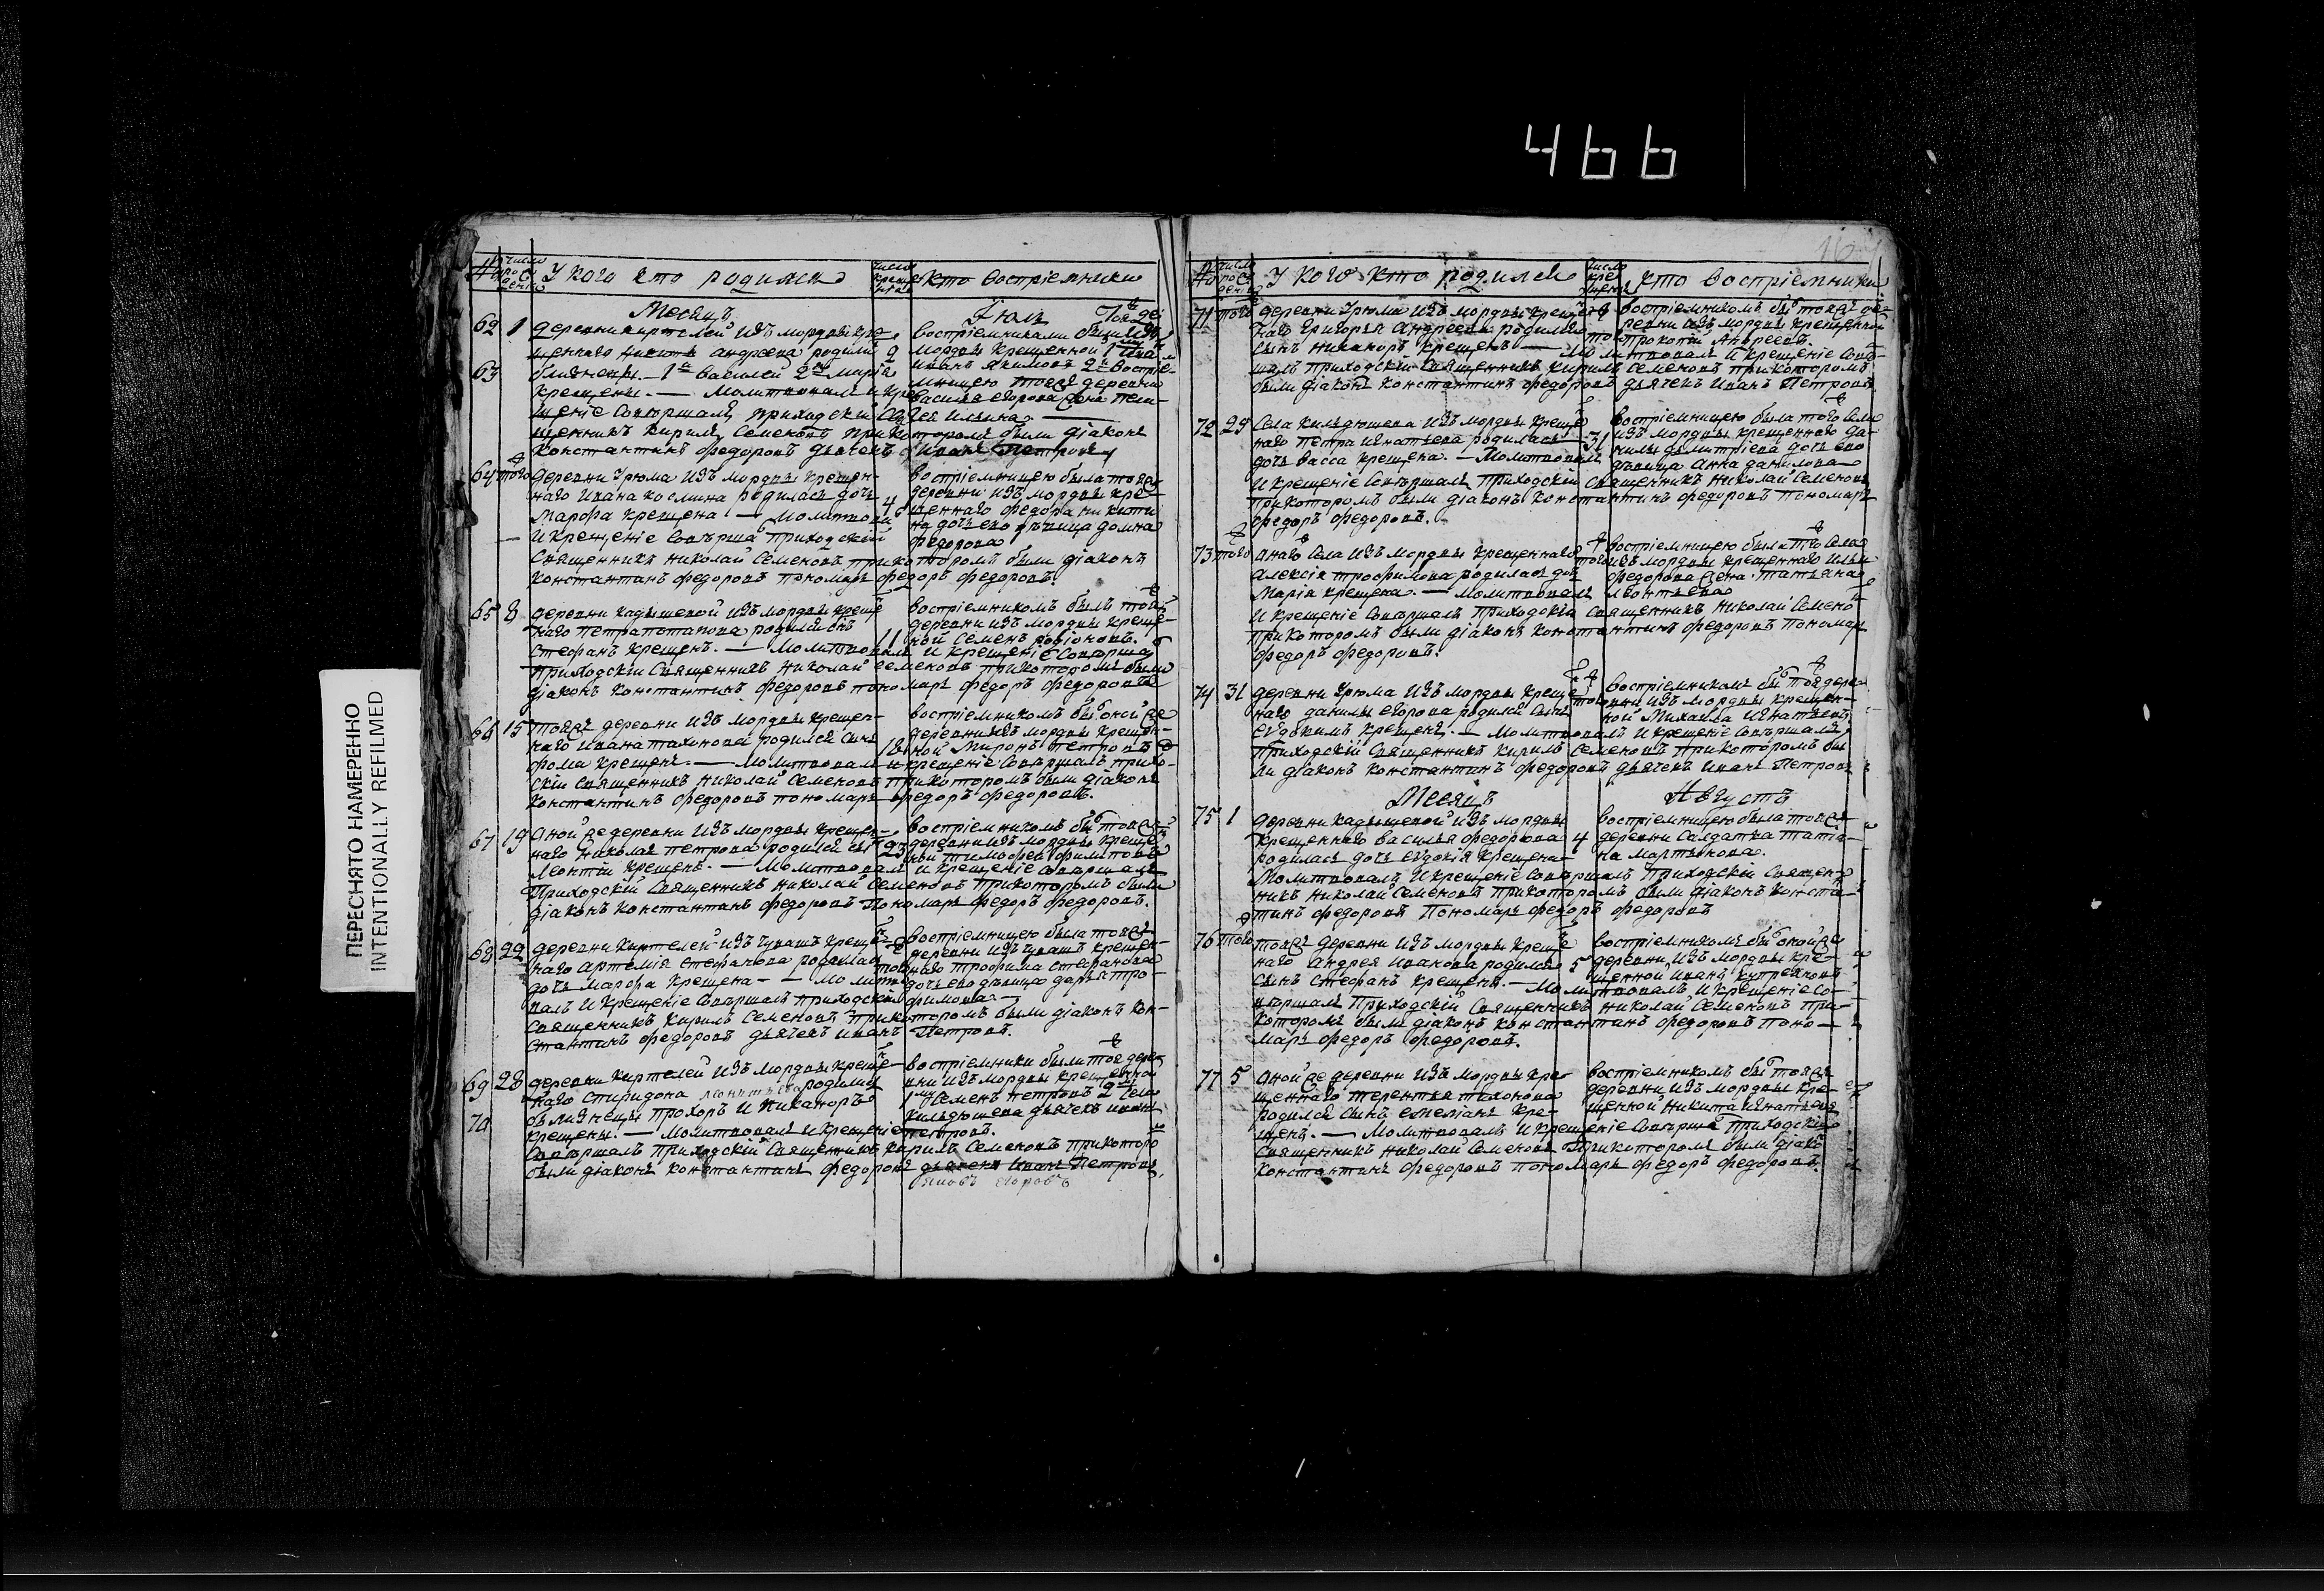 466
167
ПЕРЕСНЯТО НАМЕРЕННО
INTENTIONALLY REFILMED
№ число рожденія У кого кто родился число крещенія кто воспріемники
Месяцъ Іюль
62 1 деревни киртелей изъ мордвы кре-
щеннаго андреева родились 2
63 близнецы. — 1й василей 2я Марія
крещены. — Молитвовалъ и кре-
щеніе совершалъ приходскій свя-
щенникъ Кирилъ Семеновъ при ко-
торомъ были діаконъ
Константинъ федоровъ дьячекъ Иванъ Петровъ
воспріемниками были
мордвы крещенной
иванъ Якимовъ 2й воспріе-
мницею тояже деревни
василья егорова жена пела-
гея ильина
64 того деревни Урюма изъ мордвы крещен-
наго Ивана козмина родилась дочь
Марфа крещена — Молитвовалъ 4
и крещеніе совершалъ приходскій
священникъ Николай Семеновъ при которомъ были діаконъ
Константинъ федоровъ пономарь федоръ федоровъ.
воспріемницею была тояже
деревни изъ мордвы кре-
щеннаго федора никити-
на дочь ево дѣвица домна
федорова
65 8 деревни кадышевой изъ мордвы креще-
наго петра потапова родился сынъ
стефанъ крещенъ. — Молитвовалъ 11 и крещеніе совершалъ
приходскій священникъ Николай Семеновъ при которомъ были
діаконъ Константинъ федоровъ пономарь федоръ федоровъ
воспріемникомъ былъ тояже
деревни изъ мордвы креще-
ной Семенъ родіоновъ.
66 15 тояже деревни изъ мордвы крещен-
наго Ивана тихонова родился сынъ
фома крещенъ. — Молитвовалъ 18 и крещеніе совершалъ прихо-
скій священникъ Николай Семеновъ при которомъ были діаконъ
Константинъ федоровъ пономарь федоръ федоровъ.
воспріемникомъ былъ оной же
деревни изъ мордвы крещен-
ной Миронъ петровъ
67 19 Оной же деревни изъ мордвы крещен-
наго Николая петрова родился сынъ 23
Леонтій крещенъ. — Молитвовалъ и крещеніе совершалъ
Приходскій священникъ Николай Семеновъ при которомъ были
діаконъ Константинъ федоровъ Пономарь федоръ федоровъ.
воспріемникомъ былъ тояже
деревни изъ мордвы креще-
ной Тимофей филиповъ
68 22 деревни Киртелей изъ чувашъ креще-
наго Артемія стефанова родилась
дочь Марфа крещена — Молитво-
валъ и крещеніе совершалъ приходскій
священникъ Кирилъ Семеновъ при которомъ были діаконъ Кон-
стантинъ федоровъ дьячекъ иванъ Петровъ.
воспріемницею была тояже
деревни изъ чувашъ крещен-
наго трофима стефанова
дочь ево дѣвица дарья тро-
фимова —
69 28 деревни Киртелей изъ мордвы креще-
наго Спиридона родились
близнецы Прохоръ и Никаноръ
70 крещены. — Молитвовалъ и крещеніе
совершалъ приходскій священникъ Кирилъ Семеновъ при которомъ
были діаконъ Константинъ федоровъ дьячекъ Иванъ Петровъ
Яковъ егоровъ
воспріемники были тояже дере-
вни изъ мордвы крещенной
1й Семенъ петровъ 2й Села
Кильдюшева дьячекъ иванъ
петровъ.
№ число рожденія У кого кто родился число крещенія кто воспріемники
71 того деревни Урюма изъ мордвы крещен-
наго Григорья Андреева родился
сынъ Никаноръ крещенъ — Молитвовалъ и крещеніе совер-
шалъ приходскій священникъ Кирилъ Семеновъ при которомъ
были діаконъ Константинъ федоровъ дьячекъ Иванъ Петровъ
воспріемникомъ былъ тояже де-
ревни изъ мордвы крещенной
Прокопій Андреевъ.
72 29 Села Кильдюшева изъ мордвы креще-
наго Петра Игнатьева родилась 31
дочь Васса крещена. — Молитвовалъ
и крещеніе совершалъ приходскій священникъ Николай Семеновъ
при которомъ были діаконъ Константинъ федоровъ пономарь
федоръ федоровъ.
воспріемницею была того села
изъ мордвы крещеннаго да-
нилы дмитріева дочь ево
дѣвица Анна данилова
73 того онаго села изъ мордвы крещеннаго
Алексія трофимова родилась дочь
Марія крещена. — Молитвовалъ
и крещеніе совершалъ приходскій священникъ Николай Семеновъ
при которомъ были діаконъ Константинъ федоровъ пономарь
федоръ федоровъ.
воспріемницею была того села
изъ мордвы крещеннаго Ильи
федорова жена татьяна
леонтьева
74 31 деревни Урюма изъ мордвы креще-
наго данилы егорова родился сынъ
Евдокимъ крещенъ. — Молитвовалъ и крещеніе совершалъ
Приходскій священникъ Кирилъ Семеновъ при которомъ бы-
ли діаконъ Константинъ федоровъ дьячекъ Иванъ Петровъ
воспріемникомъ былъ тояже дере-
вни изъ мордвы крещен-
ной Михаила Игнатьевъ
Месяцъ Августъ
75 1 деревни Кадышевой изъ мордвы
крещеннаго василья федорова 4
родилась дочь евдокія крещена
Молитвовалъ и крещеніе совершалъ приходскій священ-
никъ Николай Семеновъ при которомъ были діаконъ Конста-
тинъ федоровъ Пономарь федоръ федоровъ
воспріемницею была тояже
деревни Салдатка татія-
на мартынова.
76 того тояже деревни изъ мордвы креще-
наго Андрея Иванова родился 5
сынъ стефанъ крещенъ. — Молитвовалъ и крещеніе со-
вершалъ Приходскій священникъ Николай Семеновъ при
которомъ были діаконъ Константинъ федоровъ поно-
марь федоръ федоровъ.
воспріемникомъ былъ оной же
деревни изъ мордвы кре-
щенной иванъ
77 5 Оной же деревни изъ мордвы кре-
щеннаго терентья тихонова
родился сынъ емеліанъ кре-
щенъ. — Молитвовалъ и крещеніе совершалъ приходскій
священникъ Николай Семеновъ при которомъ были діаконъ
Константинъ федоровъ пономарь федоръ федоровъ.
воспріемникомъ былъ тояже
деревни изъ мордвы кре-
щенной Никита Игнатьевъ